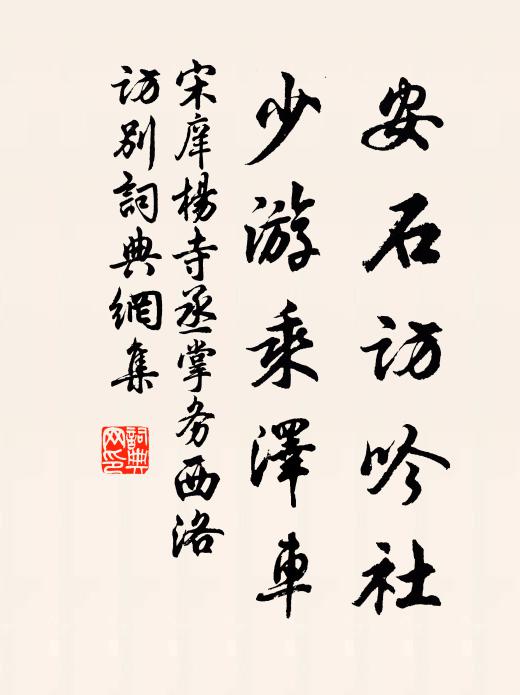 安石訪吟社
少游乘澤車
宋庠楊寺丞掌务西洛
訪别詞典網集
詞典
网印